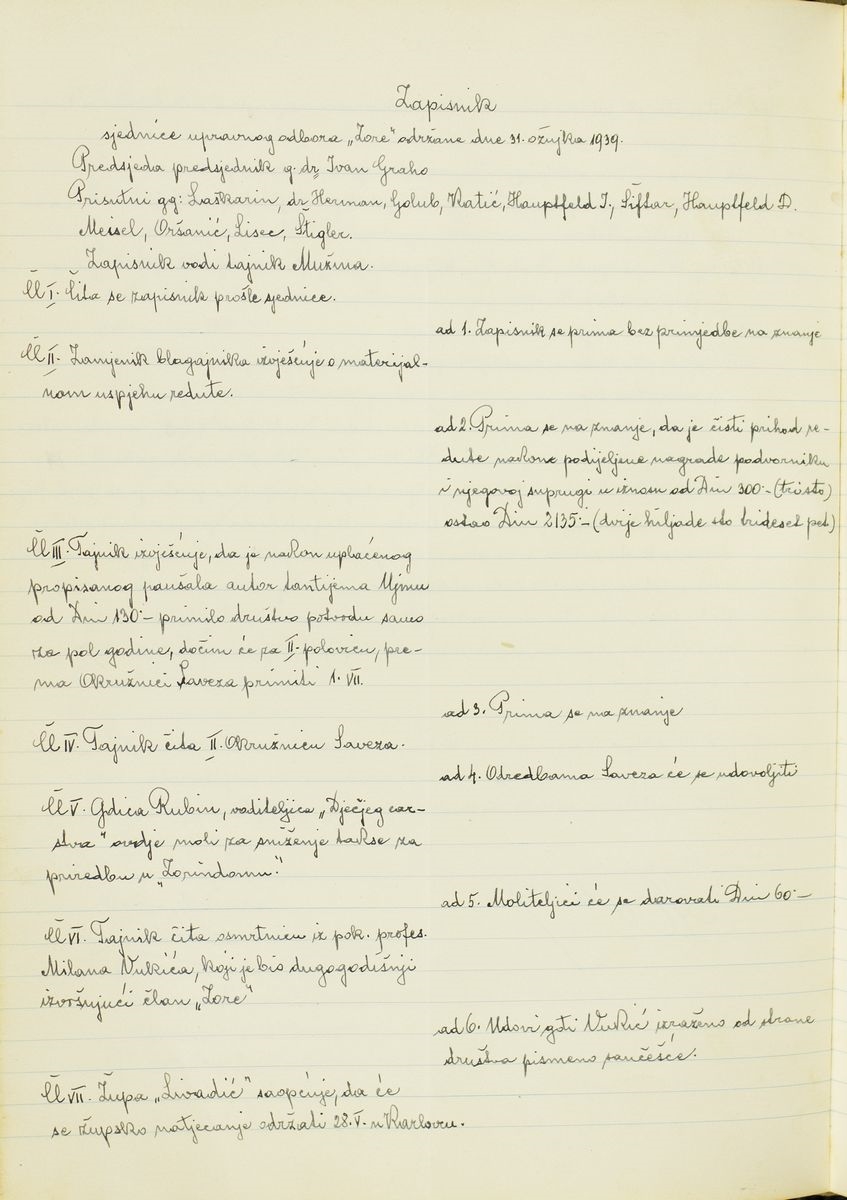 Zapisnik
sjednice upravnog odbora „Zore" održane dne 31. ožujka 1939.
Predsjeda predsjednik g. dr. Ivan Graho
Prisutni gg: Laškarin, dr Herman, Golub, Katić, Hauptfeld I., Šiftar, Hauptfeld D.
Meisel, Oršanić, Lisec, Štigler.
Zapisnik vodi tajnik Mužina.
Čl I. Čita se zapisnik prošle sjednice.
ad 1. Zapisnik se prima bez primjedbe na znanje
Čl II. Zamjenik blagajnika izvješćuje o materijal-
nom uspjehu redute.
ad 2. Prima se na znanje, da je čisti prihod re-
dute nakone podijeljene nagrade podvorniku
i njegovoj suprugi u iznosu od Din 300·- (tristo)
ostao Din 2135·- (dvije hiljade sto trideset pet)
Čl III. Tajnik izvješćuje, da je nakon uplaćenog
propisanog paušala autor tantijema Ujmu
od Din 130·- primilo društvo potvrdu samo
za pol godine, dočim će za II. polovicu, pre-
ma Okružnici Saveza primiti 1. VII.
ad 3. Prima se na znanje
Čl IV. Tajnik čita II. Okružnicu Saveza.
ad 4. Odredbama Saveza će se udovoljiti
Čl V. Gdica Rubin, voditeljica „Dječjeg car-
stva" ovdje moli za sniženje takse za
priredbu u „Zorindomu."
ad 5. Moliteljici će se darovati Din 60·-
Čl VI. Tajnik čita osmrtnicu iz pok. profes.
Milana Vukića, koji je bio dugogodišnji
izvršujući član „Zore"
ad 6. Udovi gđi Vukić izraženo od strane
društva pismeno saučešće.
Čl VII. Župa „Livadić" saopćuje, da će
se župsko natjecanje održati 28. V. u Karlovcu.